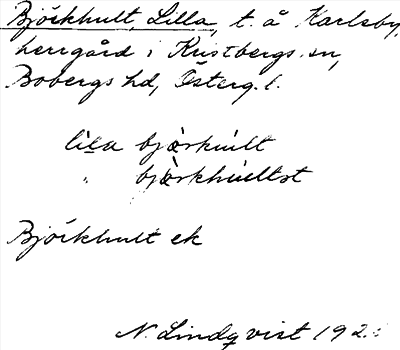 Björkhult, Lilla, t. å Karlsby,
herrgård i Kristbergs sn,
Bobergs hd, Österg. l.
lila bjòrkult
" bjòrkhulltst
Björkhult ek
N. Lindqvist 192